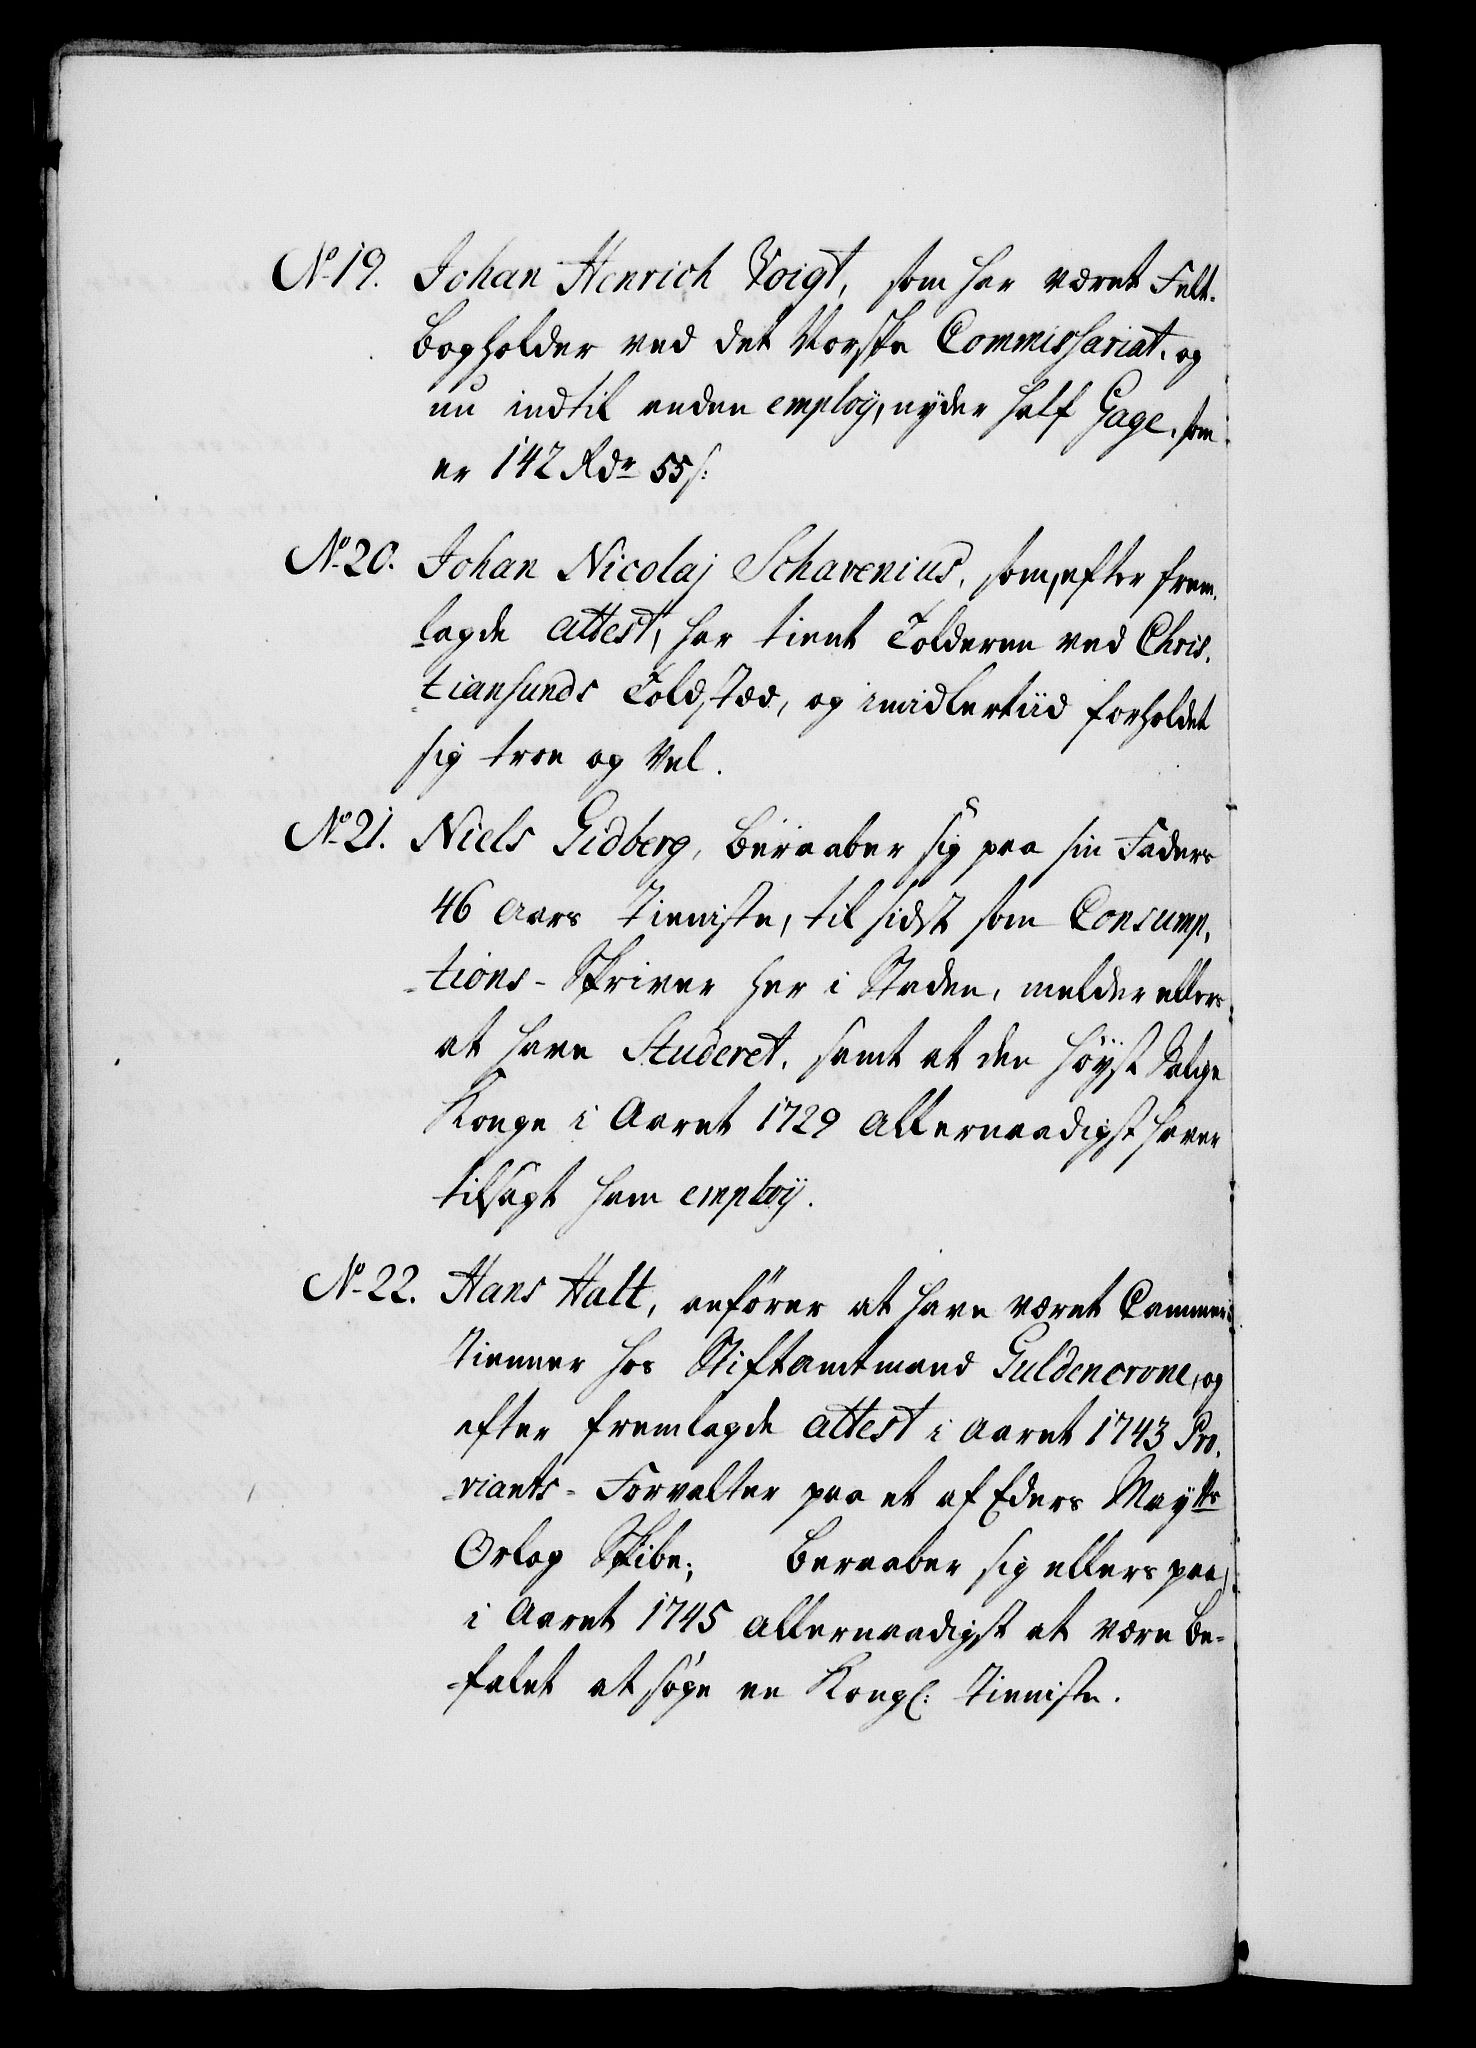 No 19. Johan Henrich Voigt, som har været Felt-
bogholder ved det Norske Commissariat, og
nu indtil anden employ, nyder half Gage, som
er 142 Rdr 55 s:
No 20. Johan Nicolaj Schavenius, som, efter frem-
lagde attest, har tient Tolderen ved Chris-
tiansunds Toldstæd, og imidlertiid forholdet
sig troe og vel.
No 21. Niels Gidberg, beraaber sig paa sin Faders
46 Aars Tieniste, til sidst som Consump-
tions-Skriver her i Staden, melder ellers
at have Studeret, samt at den høyst Salige
Konge i Aaret 1729 allernaadigst haver
tilsagt ham employ.
No 22. Hans Halt, anfører at have været Cammer-
Tienner hos Stiftamtmand Guldencrone, og
efter fremlagde attest i Aaret 1743 Pro-
viants-Forvalter paa et af Eders Maytts
Orlog Skibe; beraaber sig ellers paa,
i Aaret 1745 allernaadigst at være be-
falet at søge en Kongl: Tieniste.